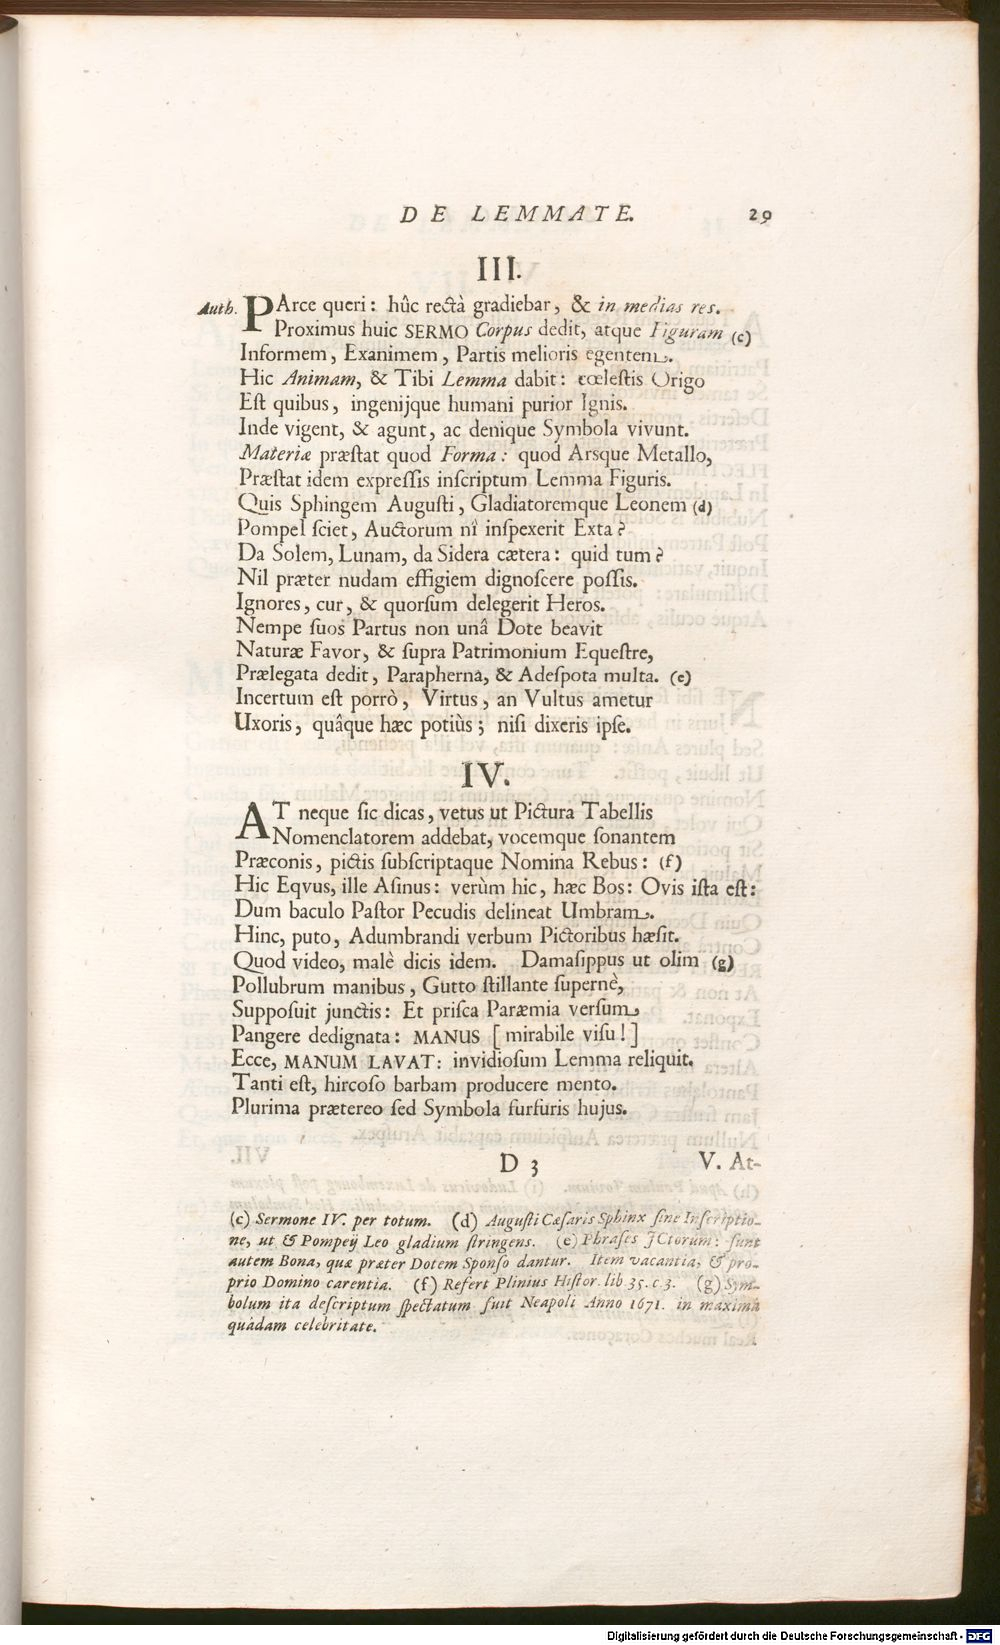 DE LEMMATE. 29
III.
Auth. PArce queri: hûc rectà gradiebar, & in medias res.
Proximus huic SERMO Corpus dedit, atque Figuram (c)
Informem, Exanimem, Partis melioris egentem.
Hic Animam, & Tibi Lemma dabit: cœlestis Origo
Est quibus, ingenijque humani purior Ignis.
Inde vigent, & agunt, ac denique Symbola vivunt.
Materiæ præstat quod Forma: quod Arsque Metallo,
Præstat idem expressis inscriptum Lemma Figuris.
Quis Sphingem Augusti, Gladiatoremque Leonem (d)
Pompeî sciet, Auctorum nî inspexerit Exta?
Da Solem, Lunam, da Sidera cætera: quid tum?
Nil præter nudam effigiem dignoscere possis.
Ignores, cur, & quorsum delegerit Heros.
Nempe suos Partus non unâ Dote beavit
Naturæ Favor, & supra Patrimonium Equestre,
Prælegata dedit, Parapherna, & Adespota multa. (e)
Incertum est porrò, Virtus, an Vultus ametur
Uxoris, quâque hæc potiùs; nisi dixeris ipse.
IV.
AT neque sic dicas, vetus ut Pictura Tabellis
Nomenclatorem addebat, vocemque sonantem
Præconis, pictis subscriptaque Nomina Rebus: (f)
Hic Eqvus, ille Asinus: verùm hic, hæc Bos: Ovis ista est:
Dum baculo Pastor Pecudis delineat Umbram.
Hinc, puto, Adumbrandi verbum Pictoribus hæsit.
Quod video, malè dicis idem. Damasippus ut olim (g)
Pollubrum manibus, Gutto stillante supernè,
Supposuit junctis: Et prisca Paræmia versum
Pangere dedignata: MANUS [mirabile visu!]
Ecce, MANUM LAVAT: invidiosum Lemma reliquit.
Tanti est, hircoso barbam producere mento.
Plurima prætereo sed Symbola furfuris hujus.
D 3 V. At-
(c) Sermone IV. per totum. (d) Augusti Cæsaris Sphinx sine Inscriptio-
ne, ut & Pompeÿ Leo gladium stringens. (e) Phrases JCtorum: sunt
autem Bona, quæ præter Dotem Sponso dantur. Item vacantia, & pro-
prio Domino carentia. (f) Refert Plinius Histor. lib. 35. c. 3. (g) Sym-
bolum ita descriptum spectatum fuit Neapoli Anno 1671. in maximâ
quâdam celebritate.
Digitalisierung gefördert durch die Deutsche Forschungsgemeinschaft - DFG